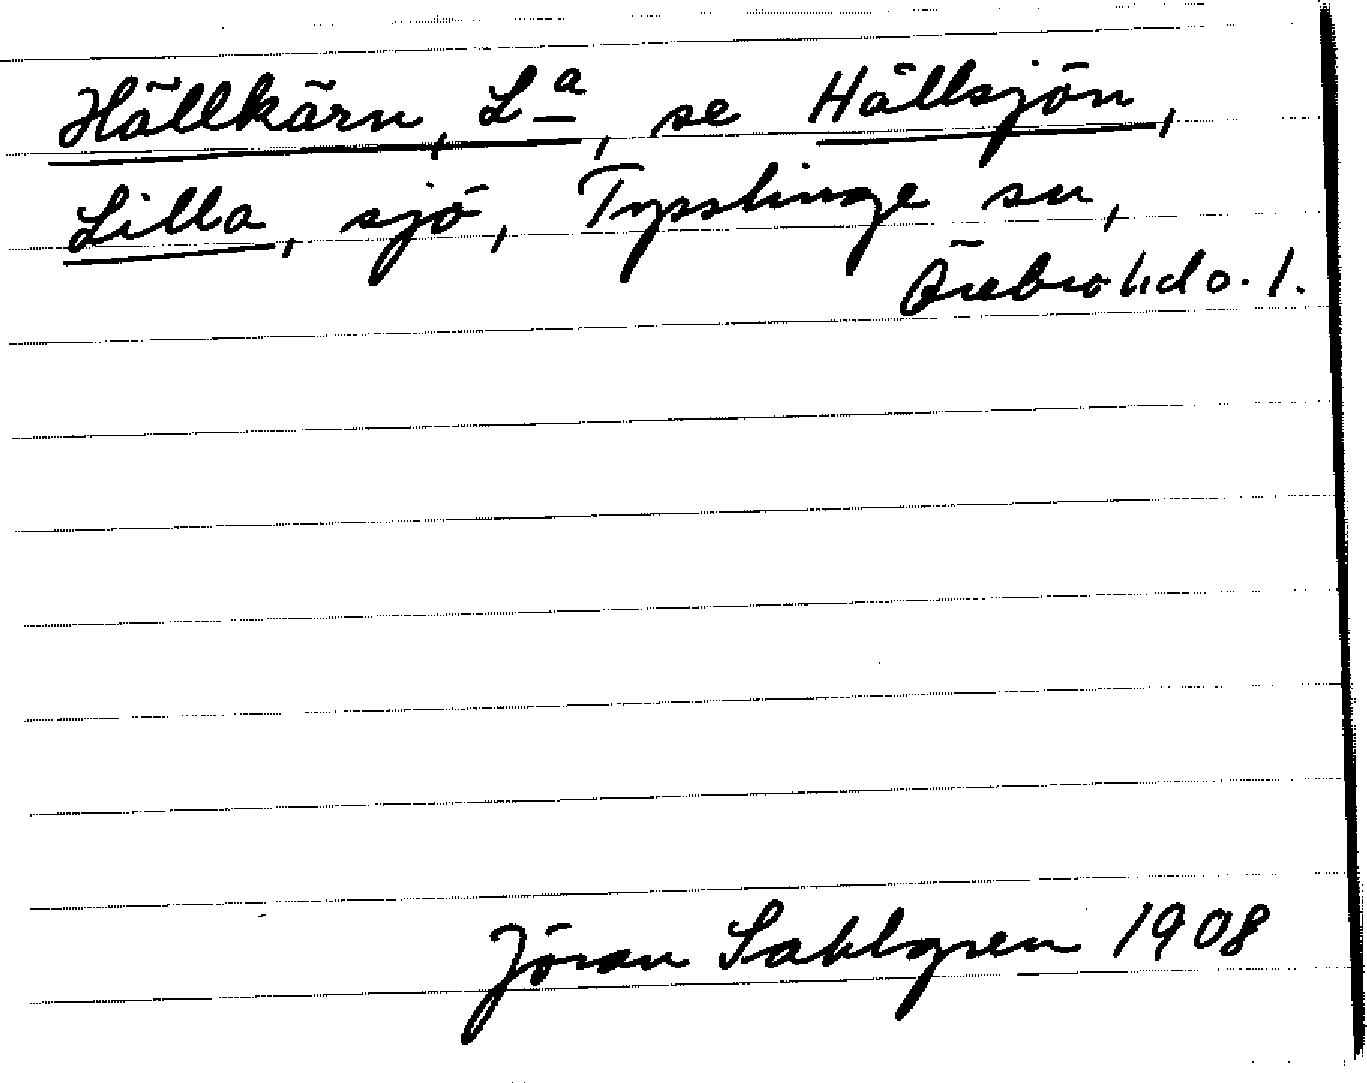 Hällkärn, Lª, se Hällsjön,
Lilla, sjö, Tysslinge sn,
Örebro hd o. l.
Jöran Sahlgren 1908